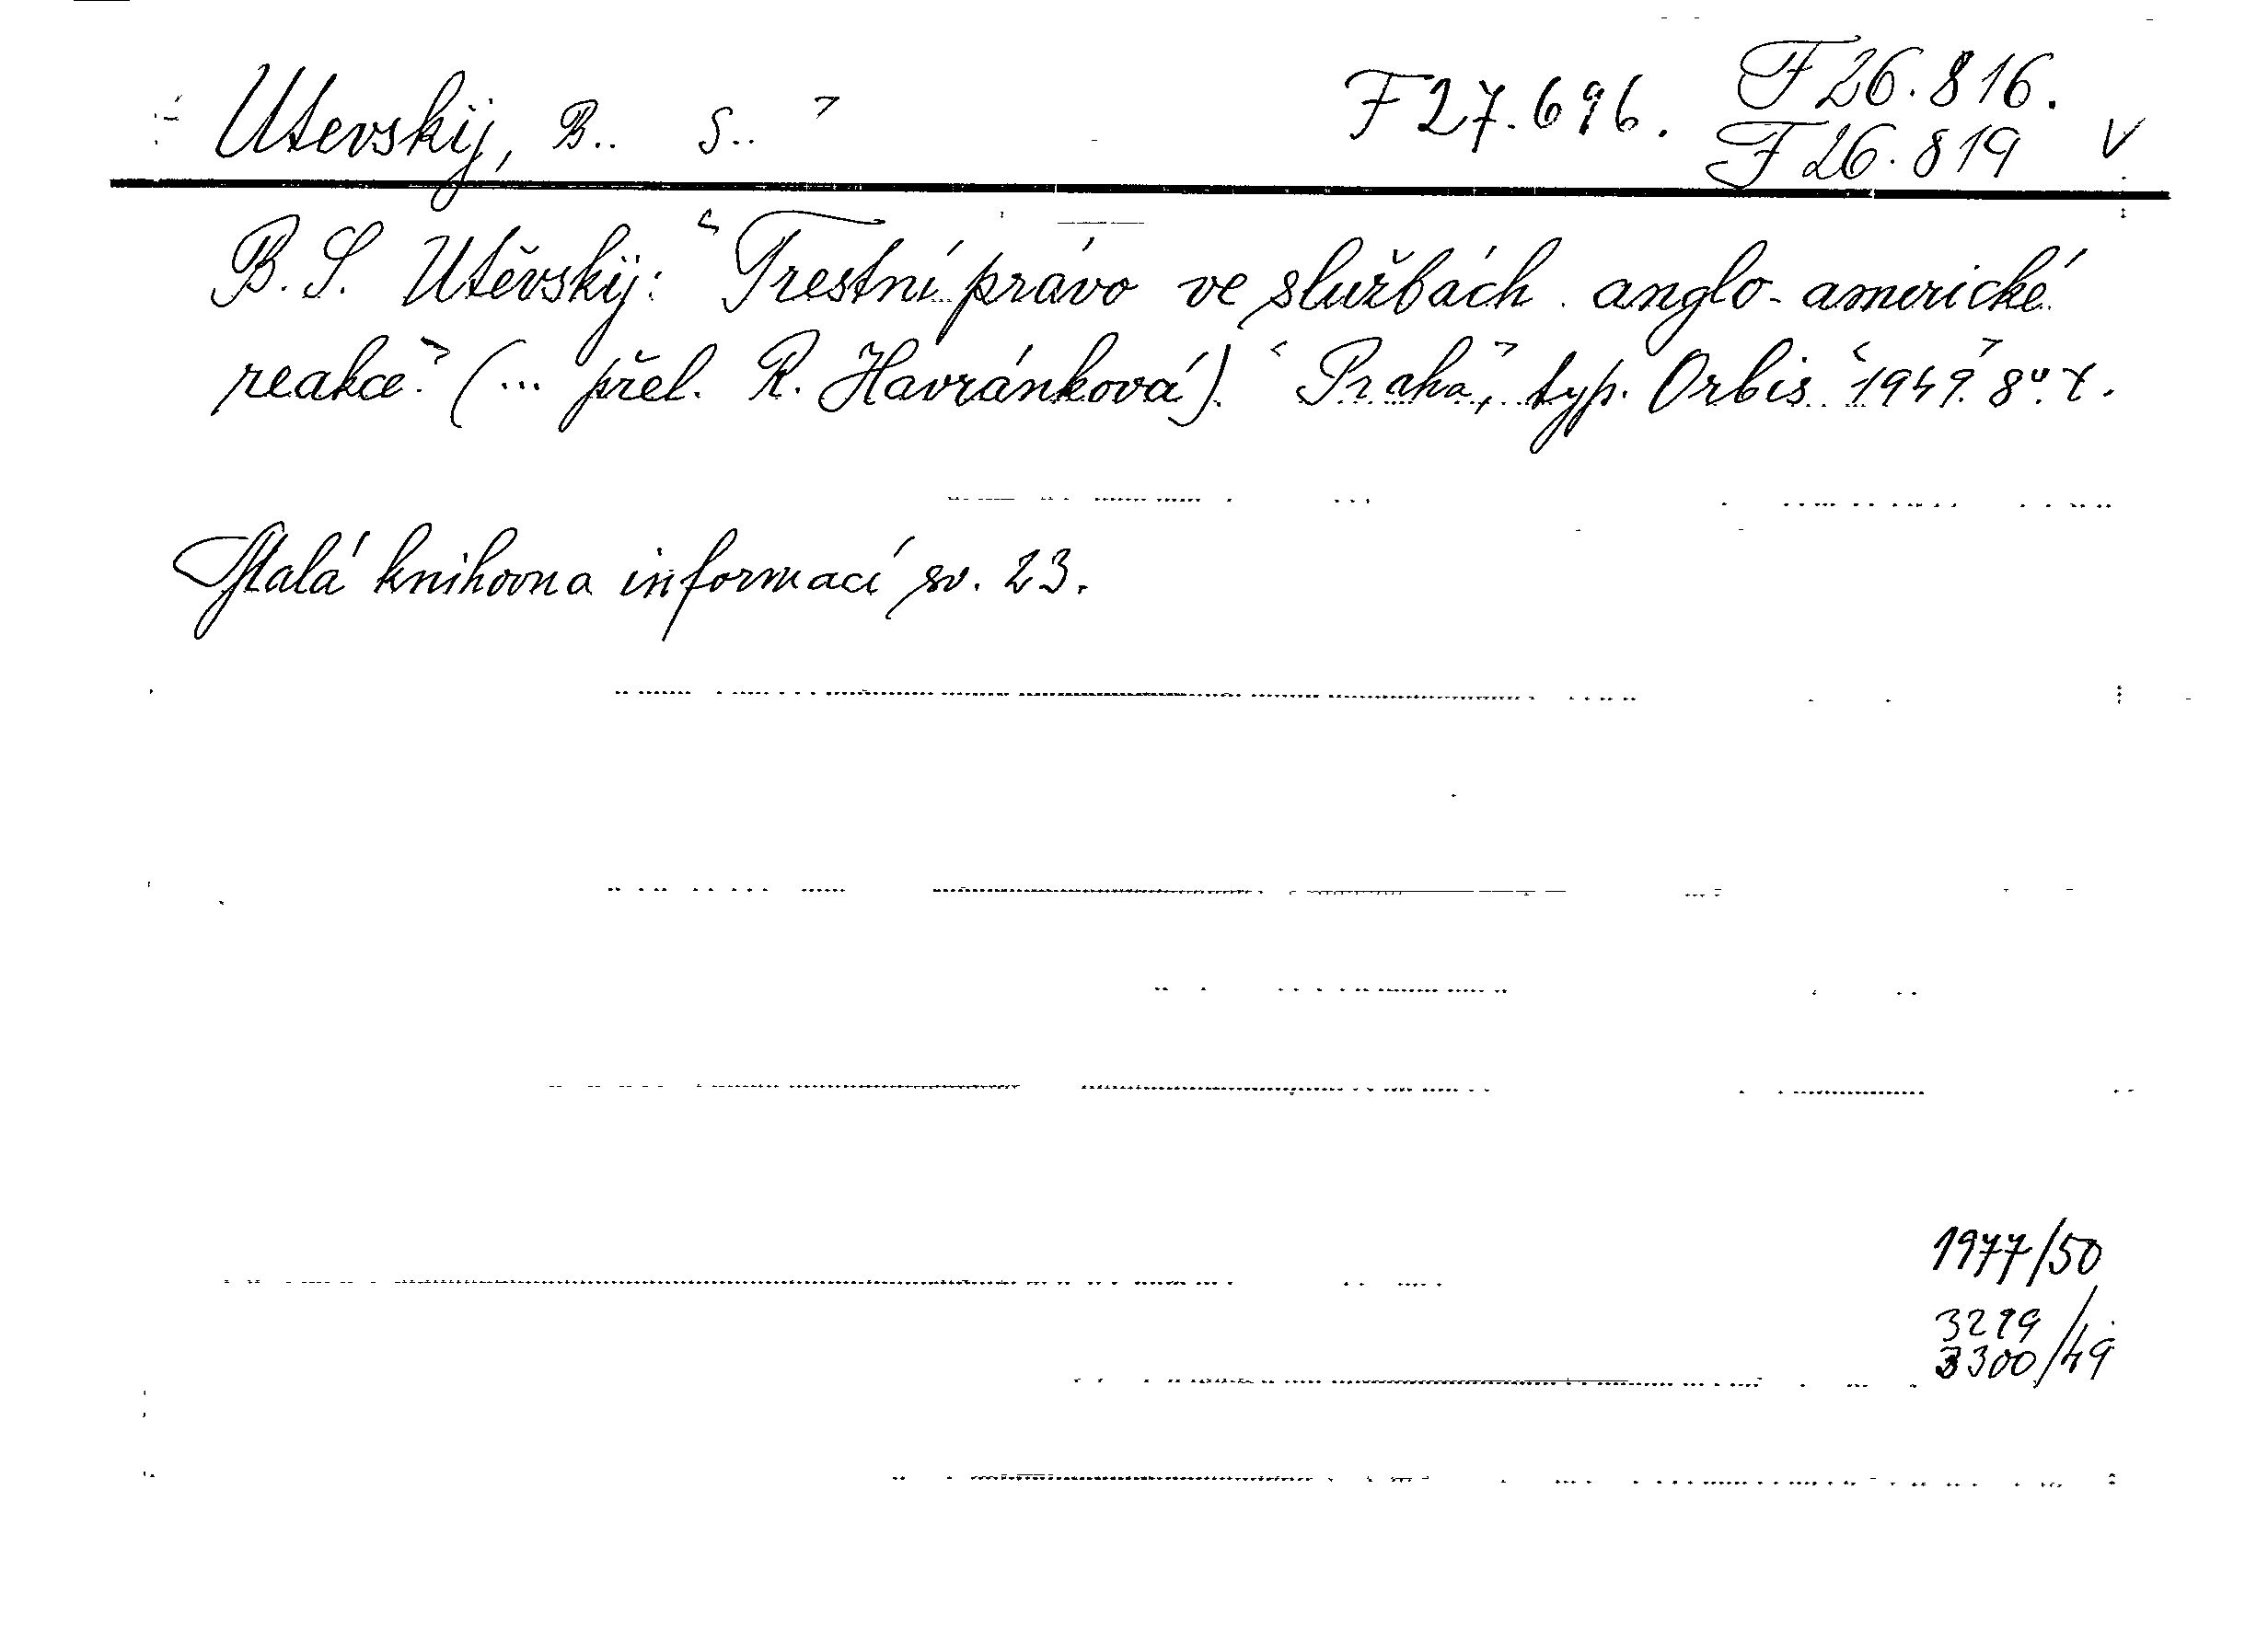 Utevskij, B.. S..                    F 27.696. F 26.816.
F 26.819 V
B. S. Utěvskij: "Trestní právo ve službách anglo-americké
reakce." (... přel. R. Havránková). "Praha," typ. Orbis "1949." 8°.
Malá knihovna informací sv. 23.
1977/50
3299
3300/49